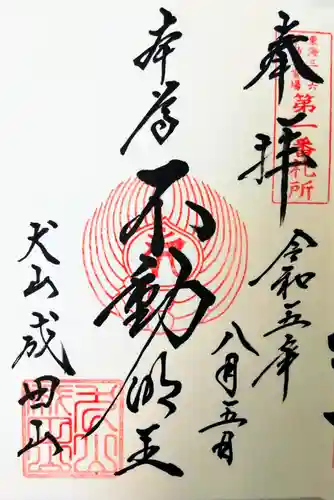 東海三十六
第一番札所
奉拝
令和五年
八月五日
本尊
不動明王
犬山成田山